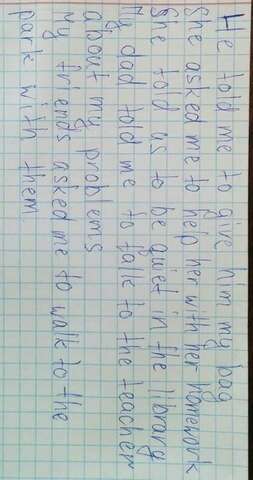 He told me to give him my bag
She asked me to help her with her homework
She told us to be quiet in the library
My dad told me to talk to the teacher
about my problems
My friends asked me to walk to the
park with them